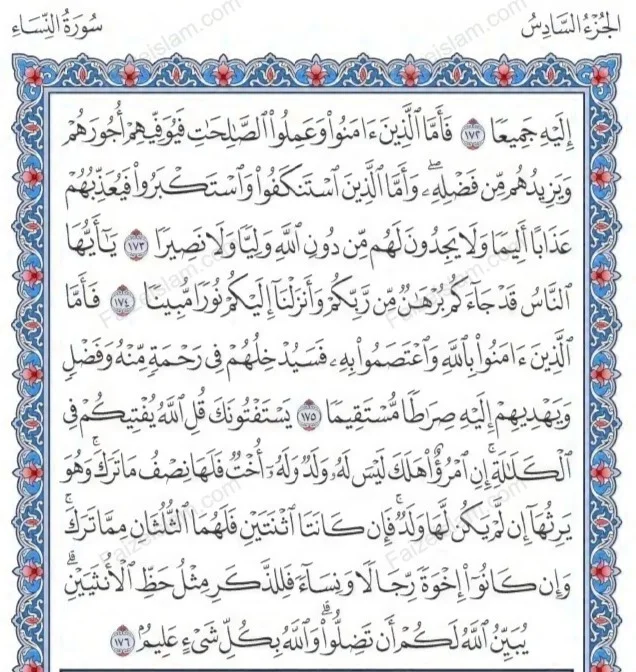 الجُزْءُ السَّادِسُ
سُورَةُ النِّسَاءِ
إِلَيْهِ جَمِيعًا ١٧٢ فَأَمَّا ٱلَّذِينَ ءَامَنُوا۟ وَعَمِلُوا۟ ٱلصَّـٰلِحَـٰتِ فَيُوَفِّيهِمْ أُجُورَهُمْ
وَيَزِيدُهُم مِّن فَضْلِهِۦۖ وَأَمَّا ٱلَّذِينَ ٱسْتَنكَفُوا۟ وَٱسْتَكْبَرُوا۟ فَيُعَذِّبُهُمْ
عَذَابًا أَلِيمًا وَلَا يَجِدُونَ لَهُم مِّن دُونِ ٱللَّهِ وَلِيًّا وَلَا نَصِيرًا ١٧٣ يَـٰٓأَيُّهَا
ٱلنَّاسُ قَدْ جَآءَكُم بُرْهَـٰنٌ مِّن رَّبِّكُمْ وَأَنزَلْنَآ إِلَيْكُمْ نُورًا مُّبِينًا ١٧٤ فَأَمَّا
ٱلَّذِينَ ءَامَنُوا۟ بِٱللَّهِ وَٱعْتَصَمُوا۟ بِهِۦ فَسَيُدْخِلُهُمْ فِى رَحْمَةٍ مِّنْهُ وَفَضْلٍ
وَيَهْدِيهِمْ إِلَيْهِ صِرَٰطًا مُّسْتَقِيمًا ١٧٥ يَسْتَفْتُونَكَ قُلِ ٱللَّهُ يُفْتِيكُمْ فِى
ٱلْكَلَـٰلَةِۚ إِنِ ٱمْرُؤٌا۟ هَلَكَ لَيْسَ لَهُۥ وَلَدٌ وَلَهُۥٓ أُخْتٌ فَلَهَا نِصْفُ مَا تَرَكَۚ وَهُوَ
يَرِثُهَآ إِن لَّمْ يَكُن لَّهَا وَلَدٌۚ فَإِن كَانَتَا ٱثْنَتَيْنِ فَلَهُمَا ٱلثُّلُثَانِ مِمَّا تَرَكَۚ
وَإِن كَانُوٓا۟ إِخْوَةً رِّجَالًا وَنِسَآءً فَلِلذَّكَرِ مِثْلُ حَظِّ ٱلْأُنثَيَيْنِۗ
يُبَيِّنُ ٱللَّهُ لَكُمْ أَن تَضِلُّوا۟ۗ وَٱللَّهُ بِكُلِّ شَىْءٍ عَلِيمٌ ١٧٦
Faizeislam.com
Faizeislam.com
Faizeislam.com
Faizeislam.com
Faizeislam.com
Faizeislam.com